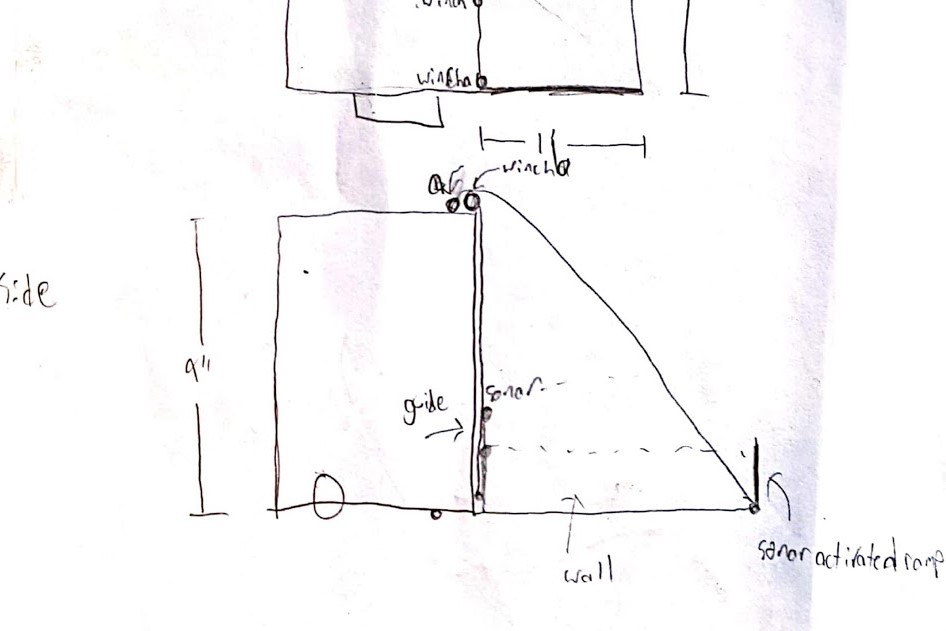 winch
wincha
winch
side
9"
sonar
guide
wall
sonar activated ramp